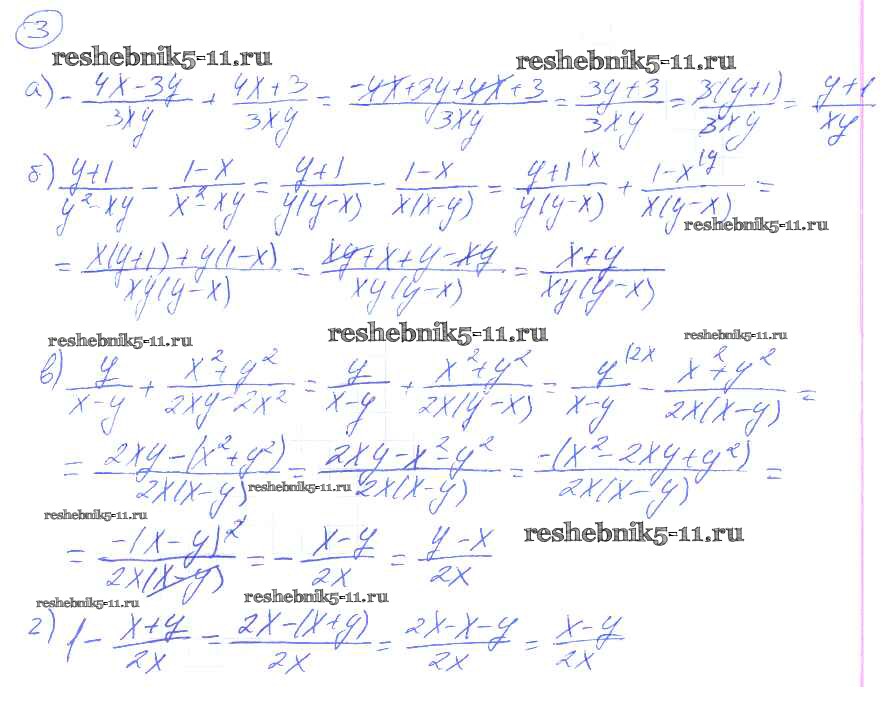 3
reshebnik5-11.ru reshebnik5-11.ru
а) - (4x-3y)/(3xy) + (4x+3)/(3xy) = (-4x+3y+4x+3)/(3xy) = (3y+3)/(3xy) = 3(y+1)/(3xy) = (y+1)/(xy)
б) (y+1)/(y²-xy) - (1-x)/(x²-xy) = (y+1)/(y(y-x)) - (1-x)/(x(x-y)) = (y+1)/(y(y-x)) |x + (1-x)/(x(y-x)) |y =
reshebnik5-11.ru
= (x(y+1)+y(1-x))/(xy(y-x)) = (xy+x+y-xy)/(xy(y-x)) = (x+y)/(xy(y-x))
reshebnik5-11.ru reshebnik5-11.ru reshebnik5-11.ru
в) y/(x-y) + (x²+y²)/(2xy-2x²) = y/(x-y) + (x²+y²)/(2x(y-x)) = y/(x-y) |2x - (x²+y²)/(2x(x-y)) =
= (2xy-(x²+y²))/(2x(x-y)) = (2xy-x²-y²)/(2x(x-y)) = -(x²-2xy+y²)/(2x(x-y)) =
reshebnik5-11.ru
reshebnik5-11.ru reshebnik5-11.ru
= -(x-y)²/(2x(x-y)) = - (x-y)/(2x) = (y-x)/(2x)
reshebnik5-11.ru reshebnik5-11.ru
г) 1 - (x+y)/(2x) = (2x-(x+y))/(2x) = (2x-x-y)/(2x) = (x-y)/(2x)